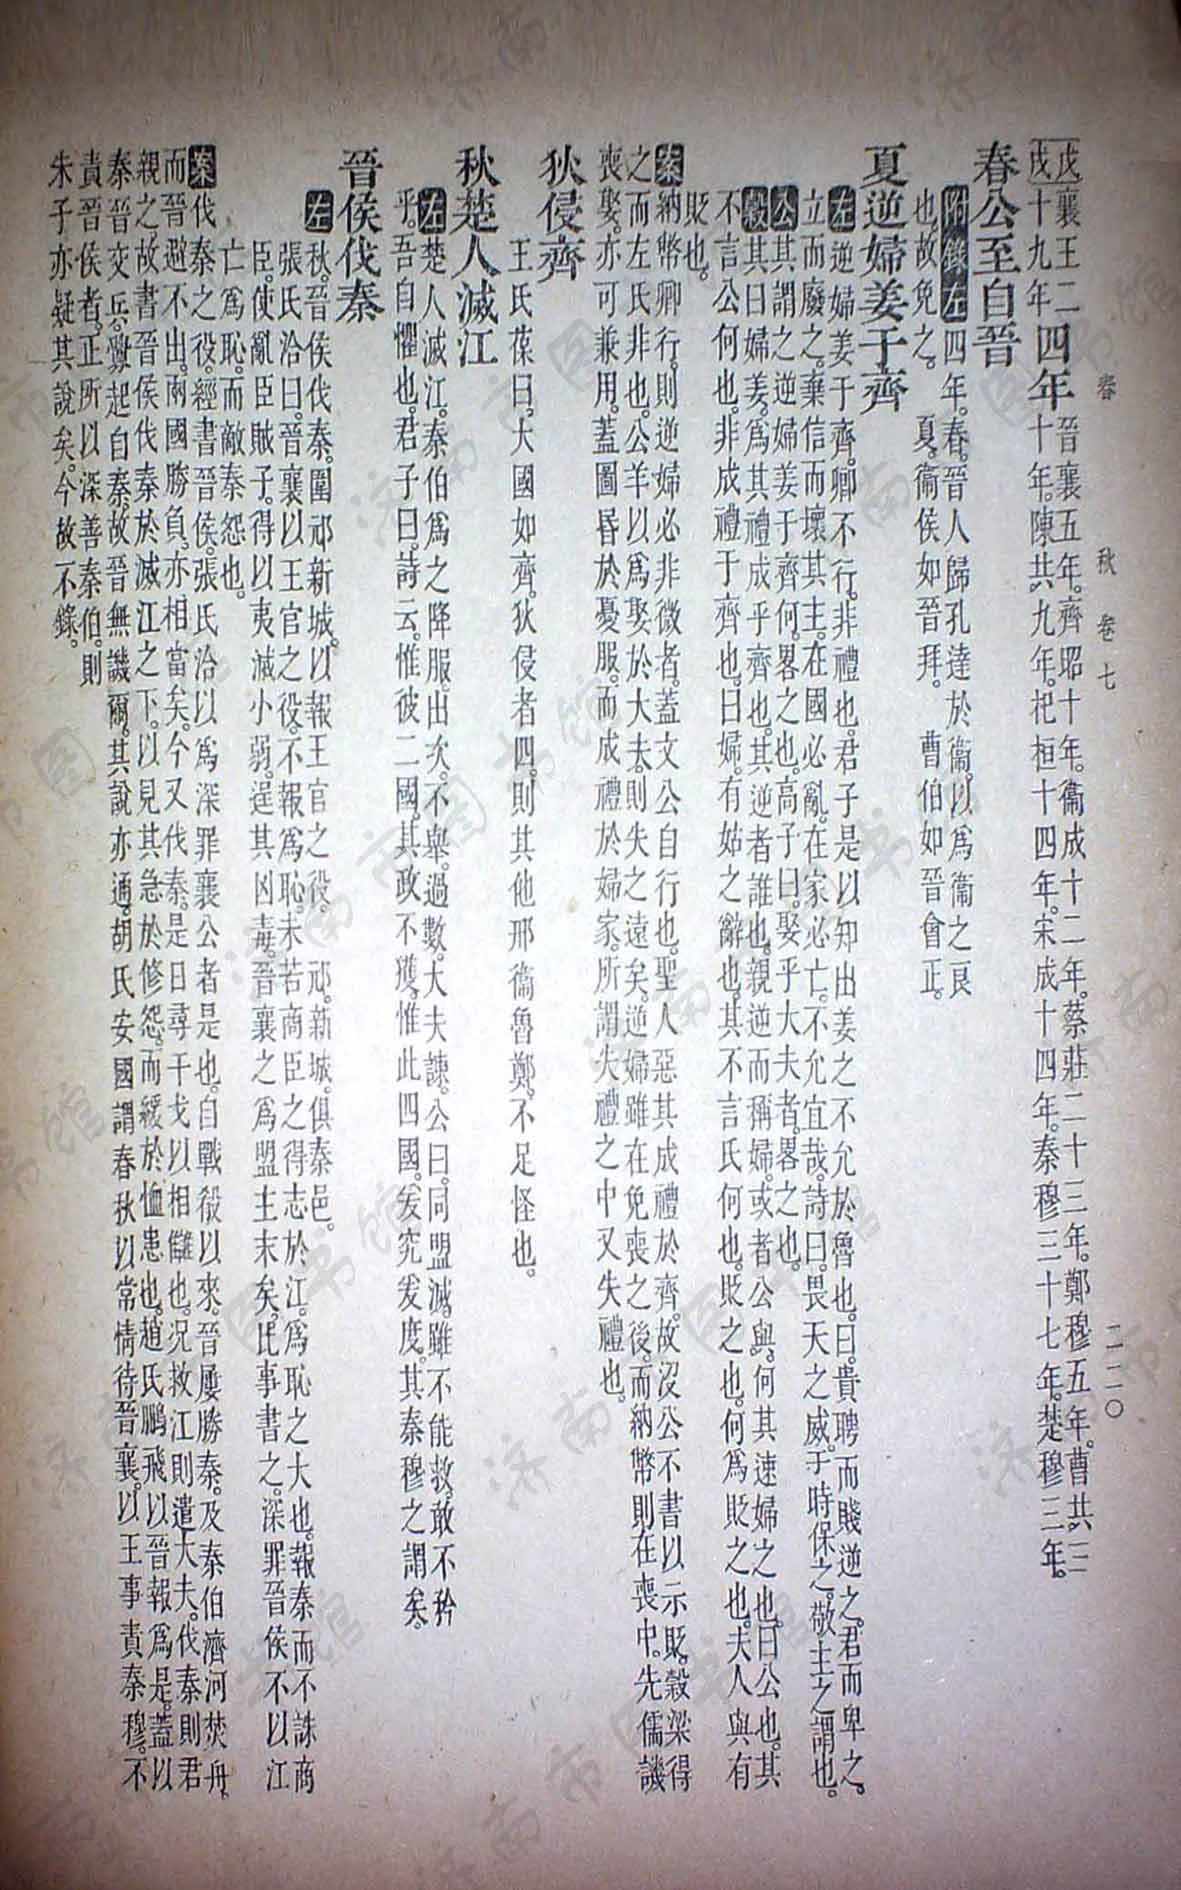 春秋 卷七 二一〇
戊戌 襄王二十九年 四年 晉襄五年。齊昭十年。衞成十二年。蔡莊二十三年。鄭穆五年。曹共三十年。陳共九年。杞桓十四年。宋成十四年。秦穆三十七年。楚穆三年。
春公至自晉
附錄左 四年。春。晉人歸孔達於衞。以爲衞之良
也。故免之。 夏。衞侯如晉拜。 曹伯如晉會正。
夏逆婦姜于齊
左 逆婦姜于齊。卿不行。非禮也。君子是以知出姜之不允於魯也。曰。貴聘而賤逆之。君而卑之。
立而廢之。棄信而壞其主。在國必亂。在家必亡。不允宜哉。詩曰。畏天之威。于時保之。敬主之謂也。
公 其謂之逆婦姜于齊何。畧之也。高子曰。娶乎大夫者。畧之也。
穀 其曰婦姜。爲其禮成乎齊也。其逆者誰也。親逆而稱婦。或者公與。何其速婦之也。曰公也。其
不言公何也。非成禮于齊也。曰婦。有姑之辭也。其不言氏何也。貶之也。何爲貶之也。夫人與有
貶也。
案 納幣卿行。則逆婦必非微者。蓋文公自行也。聖人惡其成禮於齊。故沒公不書以示貶。穀梁得
之而左氏非也。公羊以爲娶於大夫。則失之遠矣。逆婦雖在免喪之後。而納幣則在喪中。先儒譏
喪娶。亦可兼用。蓋圖昏於憂服。而成禮於婦家。所謂失禮之中又失禮也。
狄侵齊
王氏葆曰。大國如齊。狄侵者四。則其他邢衞魯鄭。不足怪也。
秋楚人滅江
左 楚人滅江。秦伯爲之降服。出次。不舉。過數。大夫諫。公曰。同盟滅。雖不能救。敢不矜
乎。吾自懼也。君子曰。詩云。惟彼二國。其政不獲。惟此四國。爰究爰度。其秦穆之謂矣。
晉侯伐秦
左 秋。晉侯伐秦。圍邧新城。以報王官之役。 邧。新城。俱秦邑。
張氏洽曰。晉襄以王官之役。不報爲恥。未若商臣之得志於江。爲恥之大也。報秦而不誅商
臣。使亂臣賊子。得以夷滅小弱。逞其凶毒。晉襄之爲盟主末矣。比事書之。深罪晉侯不以江
亡爲恥。而敵秦怨也。
案 伐秦之役。經書晉侯。張氏洽以爲深罪襄公者是也。自戰殽以來。晉屢勝秦。及秦伯濟河焚舟。
而晉避不出。兩國勝負。亦相當矣。今又伐秦。是日尋干戈以相讎也。況救江則遣大夫。伐秦則君
親之。故書晉侯伐秦於滅江之下。以見其急於修怨。而緩於恤患也。趙氏鵬飛以晉報爲是。蓋以
秦晉交兵。釁起自秦。故晉無譏爾。其說亦通。胡氏安國謂春秋以常情待晉襄。以王事責秦穆。不
責晉侯者。正所以深善秦伯。則
朱子亦疑其說矣。今故不錄。